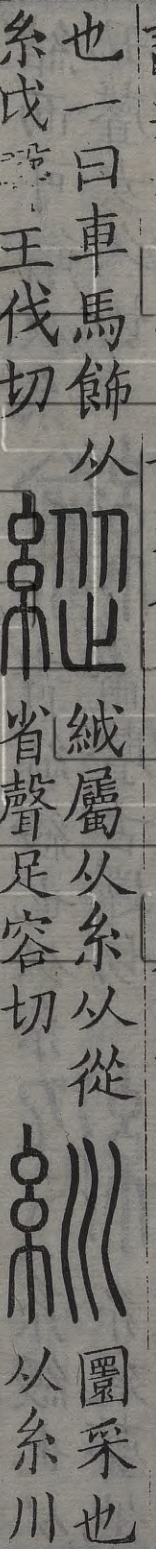 也一曰車馬飾从
糸戉王伐切
絨屬从糸从從
省聲足容切
紃
圜采也
从糸川